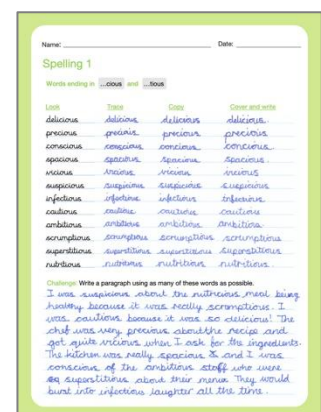 Name: Date:
Spelling 1
Words ending in ...cious and ...tious
Look Trace Copy Cover and write
delicious delicious delicious delicious.
precious precious precious precious
conscious conscious concious concious.
spacious spacious spacious spacious.
vicious vicious vicious vicious
suspicious suspicious suspicious suspicious
infectious infectious infectious infectious.
cautious cautious cautious cautious
ambitious ambitious ambitious ambitious.
scrumptious scrumptious scrumptious scrumptious
superstitious superstitious superstitious superstitious.
nutritious nutritious nutritious nutritious.
Challenge: Write a paragraph using as many of these words as possible.
I was suspicious about the nutricious meal being
healthy because it was really scromptious. I
was cautious because it was so delicious! The
chef was very precious about the recipe and
got quite vicious when I ask for the ingredients.
The kitchen was really spacious and I was
conscious of the ambitious staff who were
superstitious about their menu. They would
burst into infectious laughter all the time.